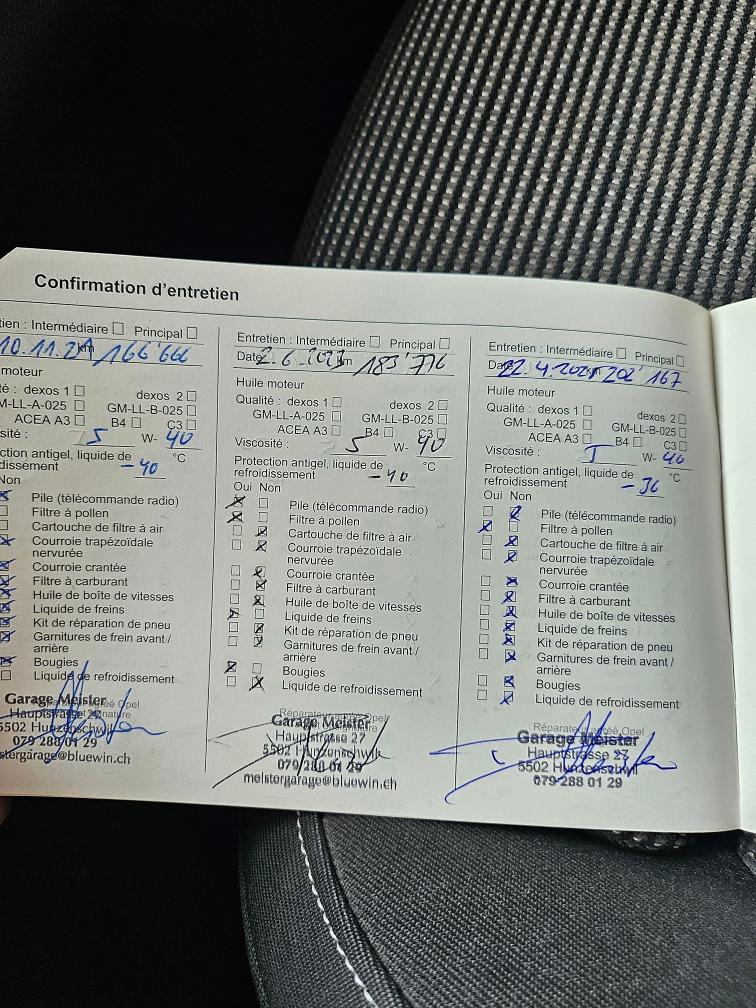 Confirmation d'entretien
tien : Intermédiaire Principal
10.11.21 km 166'666
moteur
té : dexos 1 dexos 2
M-LL-A-025 GM-LL-B-025
ACEA A3 B4 C3
osité : 5 W- 40
ction antigel, liquide de °C
dissement -40
Non
Pile (télécommande radio)
Filtre à pollen
Cartouche de filtre à air
Courroie trapézoïdale
nervurée
Courroie crantée
Filtre à carburant
Huile de boîte de vitesses
Liquide de freins
Kit de réparation de pneu
Garnitures de frein avant /
arrière
Bougies
Liquide de refroidissement
Garage Meister
Hauptstrasse 27
5502 Hunzenschwil
079 288 01 29
stergarage@bluewin.ch
Entretien : Intermédiaire Principal
Date 2.6.2023 km 183'776
Huile moteur
Qualité : dexos 1 dexos 2
GM-LL-A-025 GM-LL-B-025
ACEA A3 B4 C3
Viscosité : 5 W- 40
Protection antigel, liquide de °C
refroidissement -40
Oui Non
Pile (télécommande radio)
Filtre à pollen
Cartouche de filtre à air
Courroie trapézoïdale
nervurée
Courroie crantée
Filtre à carburant
Huile de boîte de vitesses
Liquide de freins
Kit de réparation de pneu
Garnitures de frein avant /
arrière
Bougies
Liquide de refroidissement
Réparateur agréé Opel
Garage Meister
Hauptstrasse 27
5502 Hunzenschwil
079 288 01 29
meistergarage@bluewin.ch
Entretien : Intermédiaire Principal
Date 22.4.202 km 202'167
Huile moteur
Qualité : dexos 1 dexos 2
GM-LL-A-025 GM-LL-B-025
ACEA A3 B4 C3
Viscosité : 5 W- 40
Protection antigel, liquide de °C
refroidissement -36
Oui Non
Pile (télécommande radio)
Filtre à pollen
Cartouche de filtre à air
Courroie trapézoïdale
nervurée
Courroie crantée
Filtre à carburant
Huile de boîte de vitesses
Liquide de freins
Kit de réparation de pneu
Garnitures de frein avant /
arrière
Bougies
Liquide de refroidissement
Réparateur agréé Opel
Garage Meister
Hauptstrasse 27
5502 Hunzenschwil
079 288 01 29